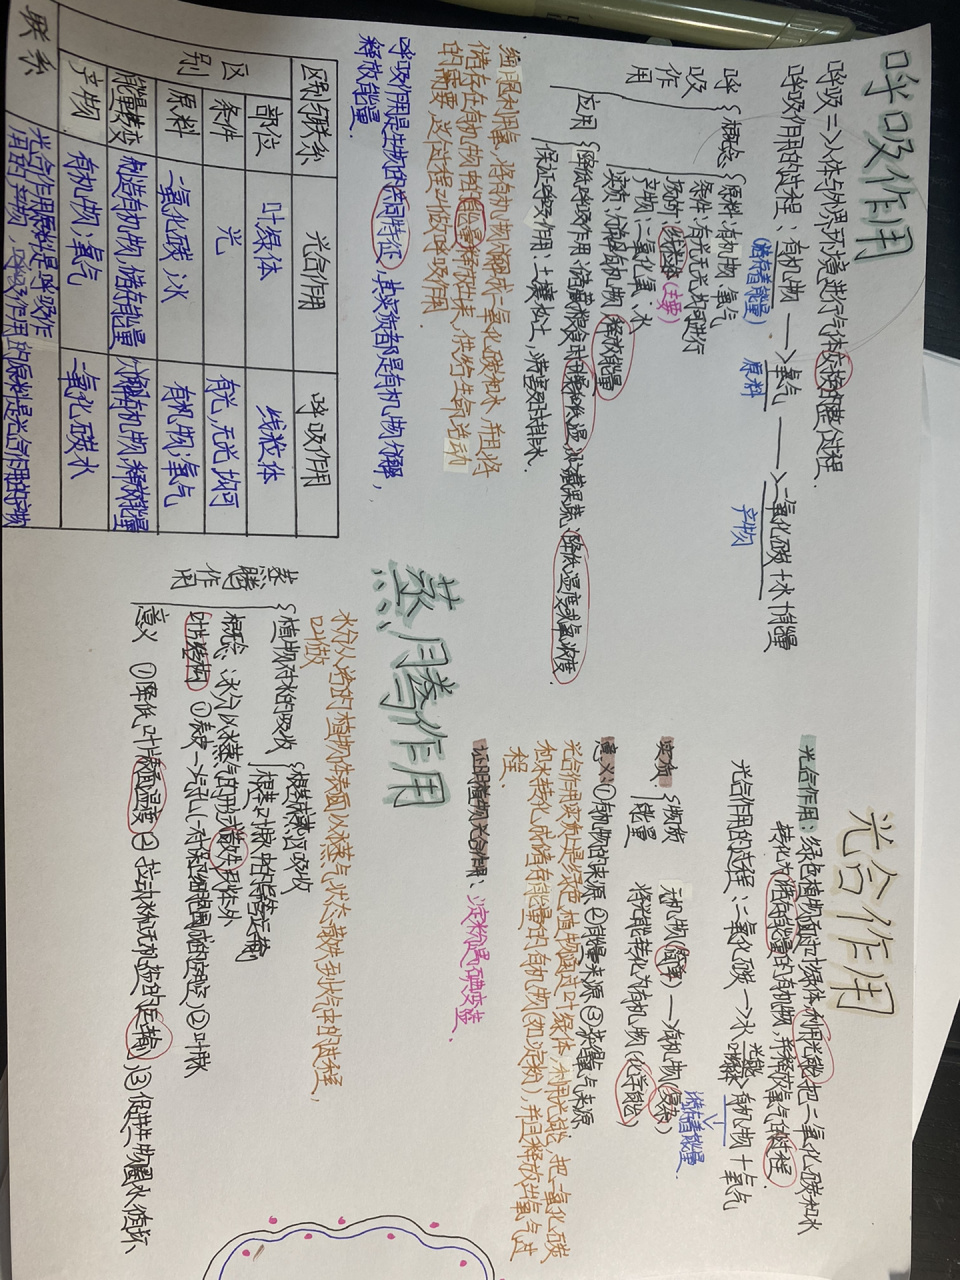 呼吸作用
呼吸 => 人体与外界环境进行气体交换的整个过程.
呼吸作用的过程: 有机物 → 氧气 → 二氧化碳+水+能量
(储存着能量) 原料 产物
呼吸作用
概念
原料:有机物、氧气
条件:有光无光均可进行
场所:线粒体(主要)
产物:二氧化氧、水
实质:分解有机物,释放能量
应用
降低呼吸作用:储藏粮食时干燥和低温,贮藏果蔬,降低温度或氧浓度
保证呼吸作用:土壤松土,涝害及时排水.
细胞利用氧,将有机物分解成二氧化碳和水,并且将
储存在有机物中的能量释放出来,供给生命活动
的需要,这个过程叫做呼吸作用.
呼吸作用是生物的共同特征,其实质都是有机物分解,
释放能量.
区别联系 光合作用 呼吸作用
区别
部位 叶绿体 线粒体
条件 光 有光,无光均可
原料 二氧化碳;水 有机物;氧气
能量转变 制造有机物,储存能量 分解有机物,释放能量
产物 有机物;氧气 二氧化碳水
联系 光合作用原料是呼吸作用的产物,呼吸作用的原料是光合作用的产物
光合作用
光合作用:绿色植物通过叶绿体,利用光能,把二氧化碳和水
转化为储存能量的有机物,并释放氧气的过程.
光合作用的过程:二氧化碳 → 水 光能 叶绿体 有机物+氧气
储存着能量
实质:
物质 无机物(简单)→有机物(复杂)
能量 将光能转化为有机物(化学能)
意义:①有机物的来源 ②能量来源 ③氧气来源
光合作用实质上是绿色植物通过叶绿体,利用光能,把二氧化碳
和水转化成储存能量的有机物(如淀粉),并且释放出氧气过
程.
证明植物光合作用:淀粉遇碘变蓝.
蒸腾作用
水分从活的植物体表面以水蒸气状态散失到大气中的过程,
叫做
蒸腾作用
植物对水的吸收
根壁成熟区吸收
根茎叶脉中的导管运输
概念:水分以水蒸气的形式散失到体外
叶片结构 ①表皮→气孔(一对保卫细胞围成的空腔) ②叶脉
意义 ①降低叶片表面温度 ②拉动水和无机盐的运输,③促进生物圈水循环.